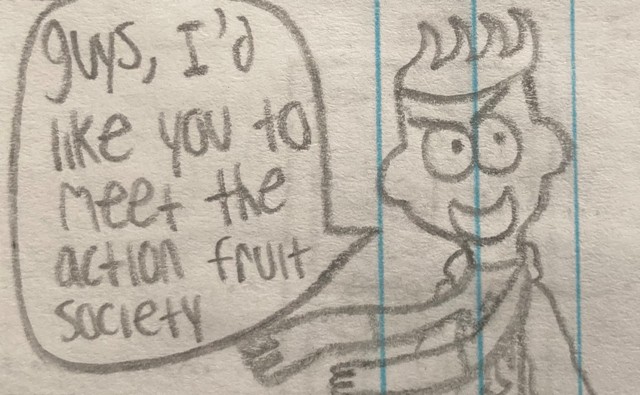 guys, I'd
like you to
meet the
action fruit
society